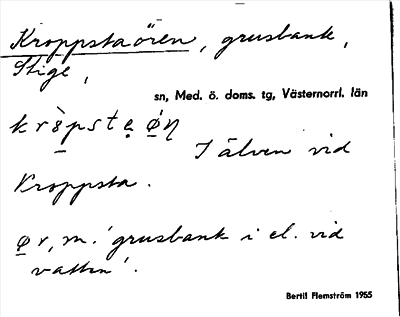 Kroppstaören, grusbank,
Stige,
sn, Med. ö. doms. tg, Västernorrl. län
krò̱pstẹ ǿ̱ŋ
I älven vid
Kroppsta.
ø̱r, m. 'grusbank i el. vid
vatten'.
Bertil Flemström 1955